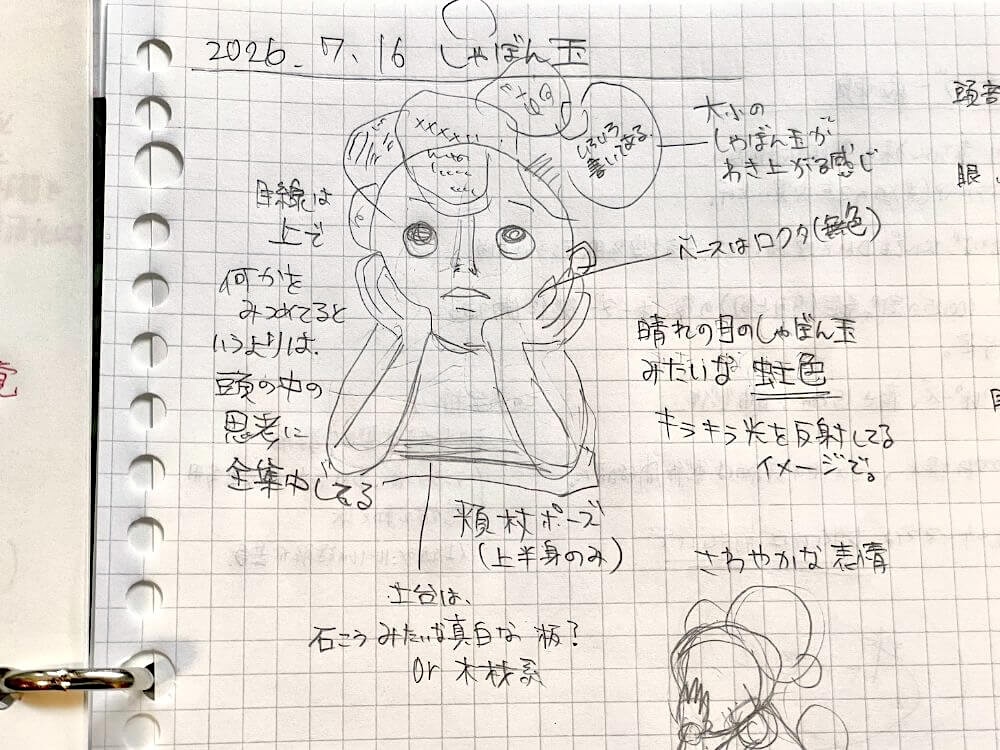 2026.7.16 しゃぼん玉
いろいろ
書いてある
大小の
しゃぼん玉が
わき上がる感じ
ベースはロクタ(無色)
目線は
上で
何かを
みつめてると
いうよりは、
頭の中の
思考に
全集中してる
晴れの日のしゃぼん玉
みたいな 虹色
キラキラ光を反射してる
イメージで。
頬杖ポーズ
(上半身のみ)
さわやかな表情
土台は、
石こうみたいな真白な板?
or 木材系
眼